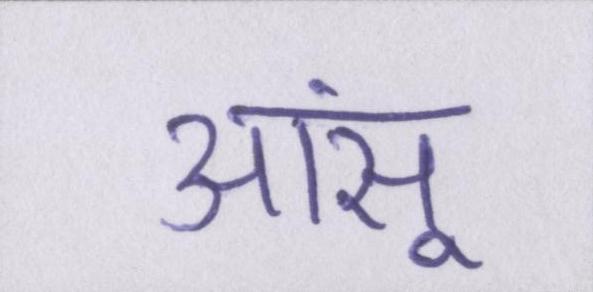 आंसू